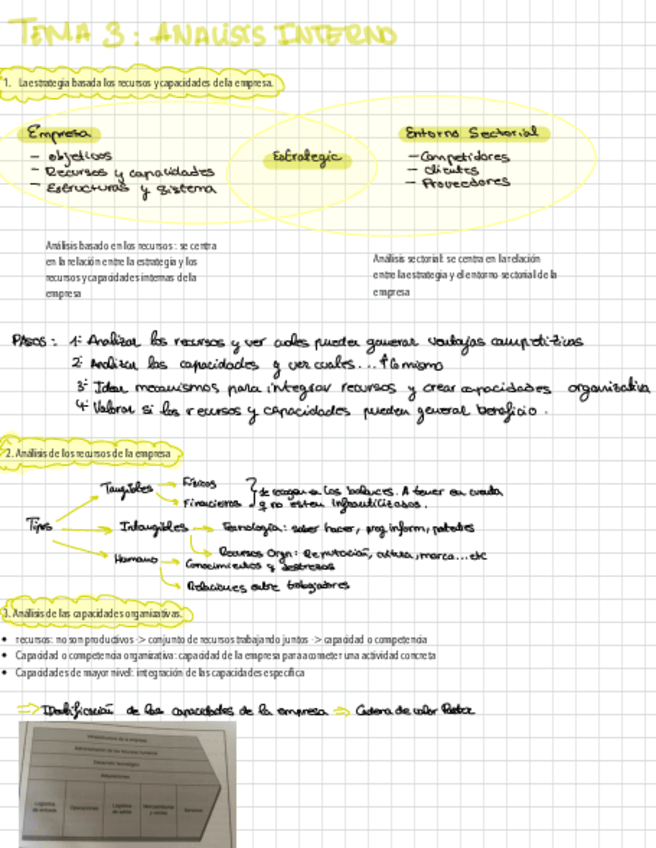 TEMA 3: ANALISIS INTERNO
1. La estrategia basada los recursos y capacidades de la empresa.
Empresa
- objetivos
- Recursos y capacidades
- Estructuras y sistema
Estrategic
Entorno Sectorial
- Competidores
- clientes
- Proveedores
Análisis basado en los recursos : se centra
en la relación entre la estrategia y los
recursos y capacidades internas de la
empresa
Análisis sectorial: se centra en la relación
entre la estrategia y el entorno sectorial de la
empresa
PASOS: 1º Analizar los recursos y ver cuales pueden generar ventajas competitivas
2º Analizar las capacidades y ver cuales... ↑ lo mismo
3º Idear mecanismos para integrar recursos y crear capacidades organizativa
4º Valorar si los recursos y capacidades pueden general beneficio.
2. Análisis de los recursos de la empresa
Tipos
Tangibles → Físicos
Financieros
se recogen en los balances. A tener en cuenta
q no esten infrautilizados.
Intangibles → Tecnología: saber hacer, prog.inform, patentes
Recursos Orgn: Reputación, cultura, marca...etc
Humano → Conocimientos y destrezas
Relaciones entre trabajadores
3. Análisis de las capacidades organizativas.
• recursos: no son productivos -> conjunto de recursos trabajando juntos -> capacidad o competencia
• Capacidad o competencia organizativa: capacidad de la empresa para acometer una actividad concreta
• Capacidades de mayor nivel: integración de las capacidades especifica
⇒ Identificación de las capacidades de la empresa ⇒ Cadena de valor Porter
Infraestructura de la empresa
Administración de los recursos humanos
Desarrollo tecnológico
Adquisiciones
Logística de entrada
Operaciones
Logística de salida
Mercadotecnia y ventas
Servicios